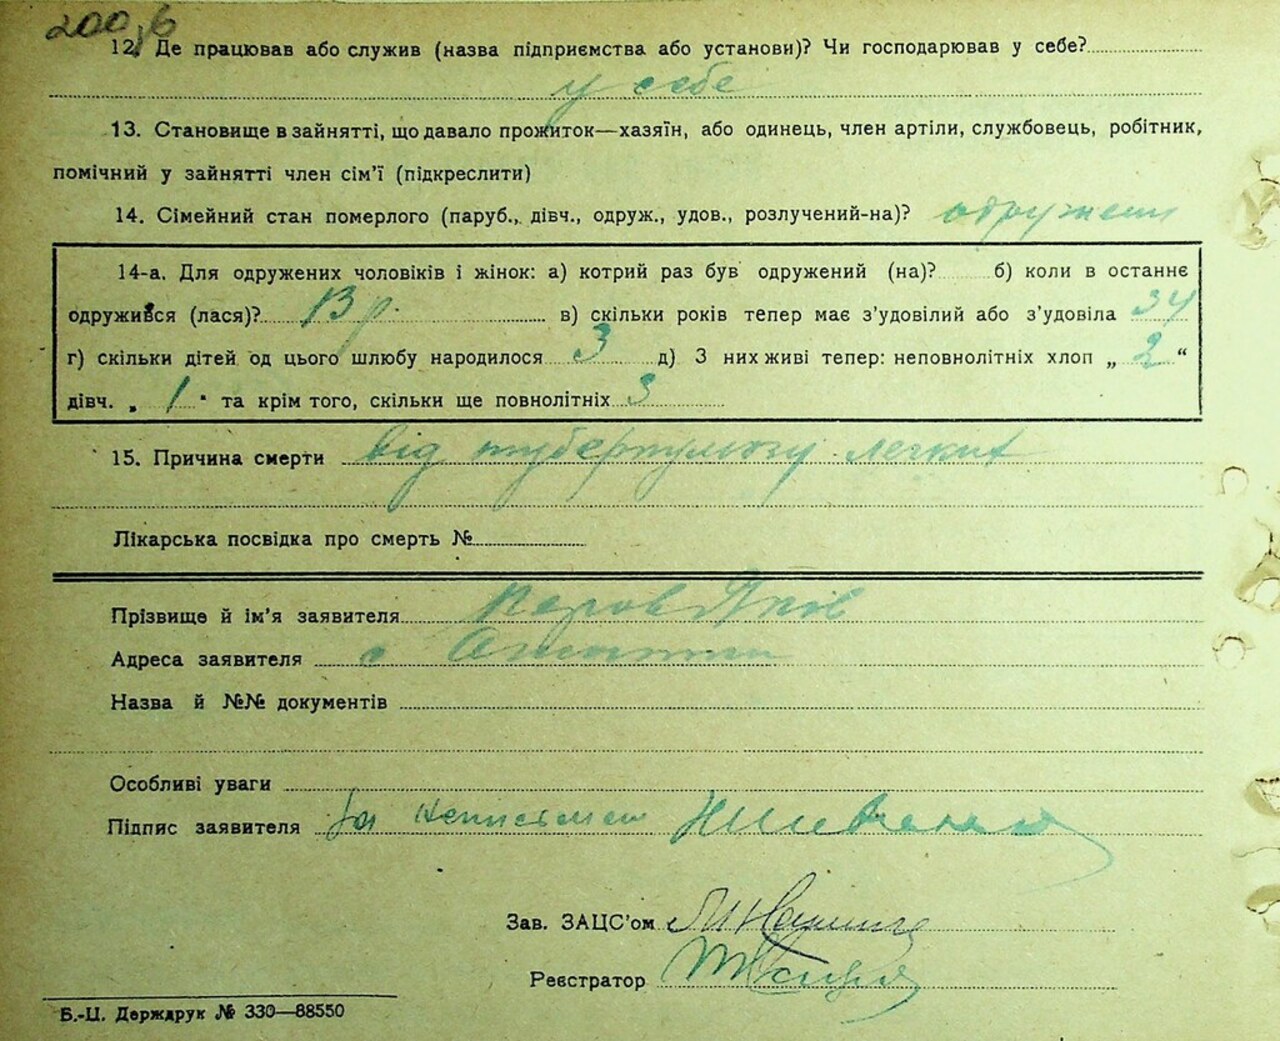 200,6
12. Де працював або служив (назва підприємства або установи)? Чи господарював у себе?
у себе
13. Становище в зайнятті, що давало прожиток—хазяїн, або одинець, член артіли, службовець, робітник,
помічний у зайнятті член сім'ї (підкреслити)
14. Сімейний стан померлого (паруб., дівч., одруж., удов., розлучений-на)? одружений
14-а. Для одружених чоловіків і жінок: а) котрий раз був одружений (на)? б) коли в останнє
одружився (лася)? 13 р. в) скільки років тепер має з'удовілий або з'удовіла 34
г) скільки дітей од цього шлюбу народилося 3 д) З них живі тепер: неповнолітніх хлоп „ 2 “
дівч. „ 1 “ та крім того, скільки ще повнолітніх 3
15. Причина смерти від туберкульозу легких
Лікарська посвідка про смерть №
Прізвище й ім'я заявителя Яків
Адреса заявителя с
Назва й №№ документів
Особливі уваги
Підпис заявителя За неписьмен
Зав. ЗАЦС'ом
Реєстратор
Б.-Ц. Держдрук № 330—88550